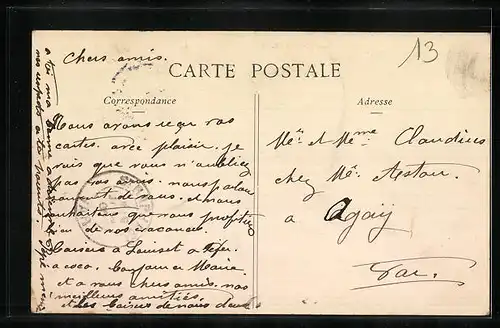 chers amis.
13
CARTE POSTALE
Correspondance
Adresse
Nous avons reçu vos
cartes avec plaisir. je
vois que vous n'oubliez
pas vos amis. nous parlons
souvent de vous. et nous
souhaitons que vous profitiez
bien de vos vacances.
Baisers a Louiset a
a coco. Bonjour a Marie.
et a vous chers amis. nos
meilleurs amitiés.
et les baisers de nous deux
Mr et Mme Claudius
chez Mr
a Agay
Var.